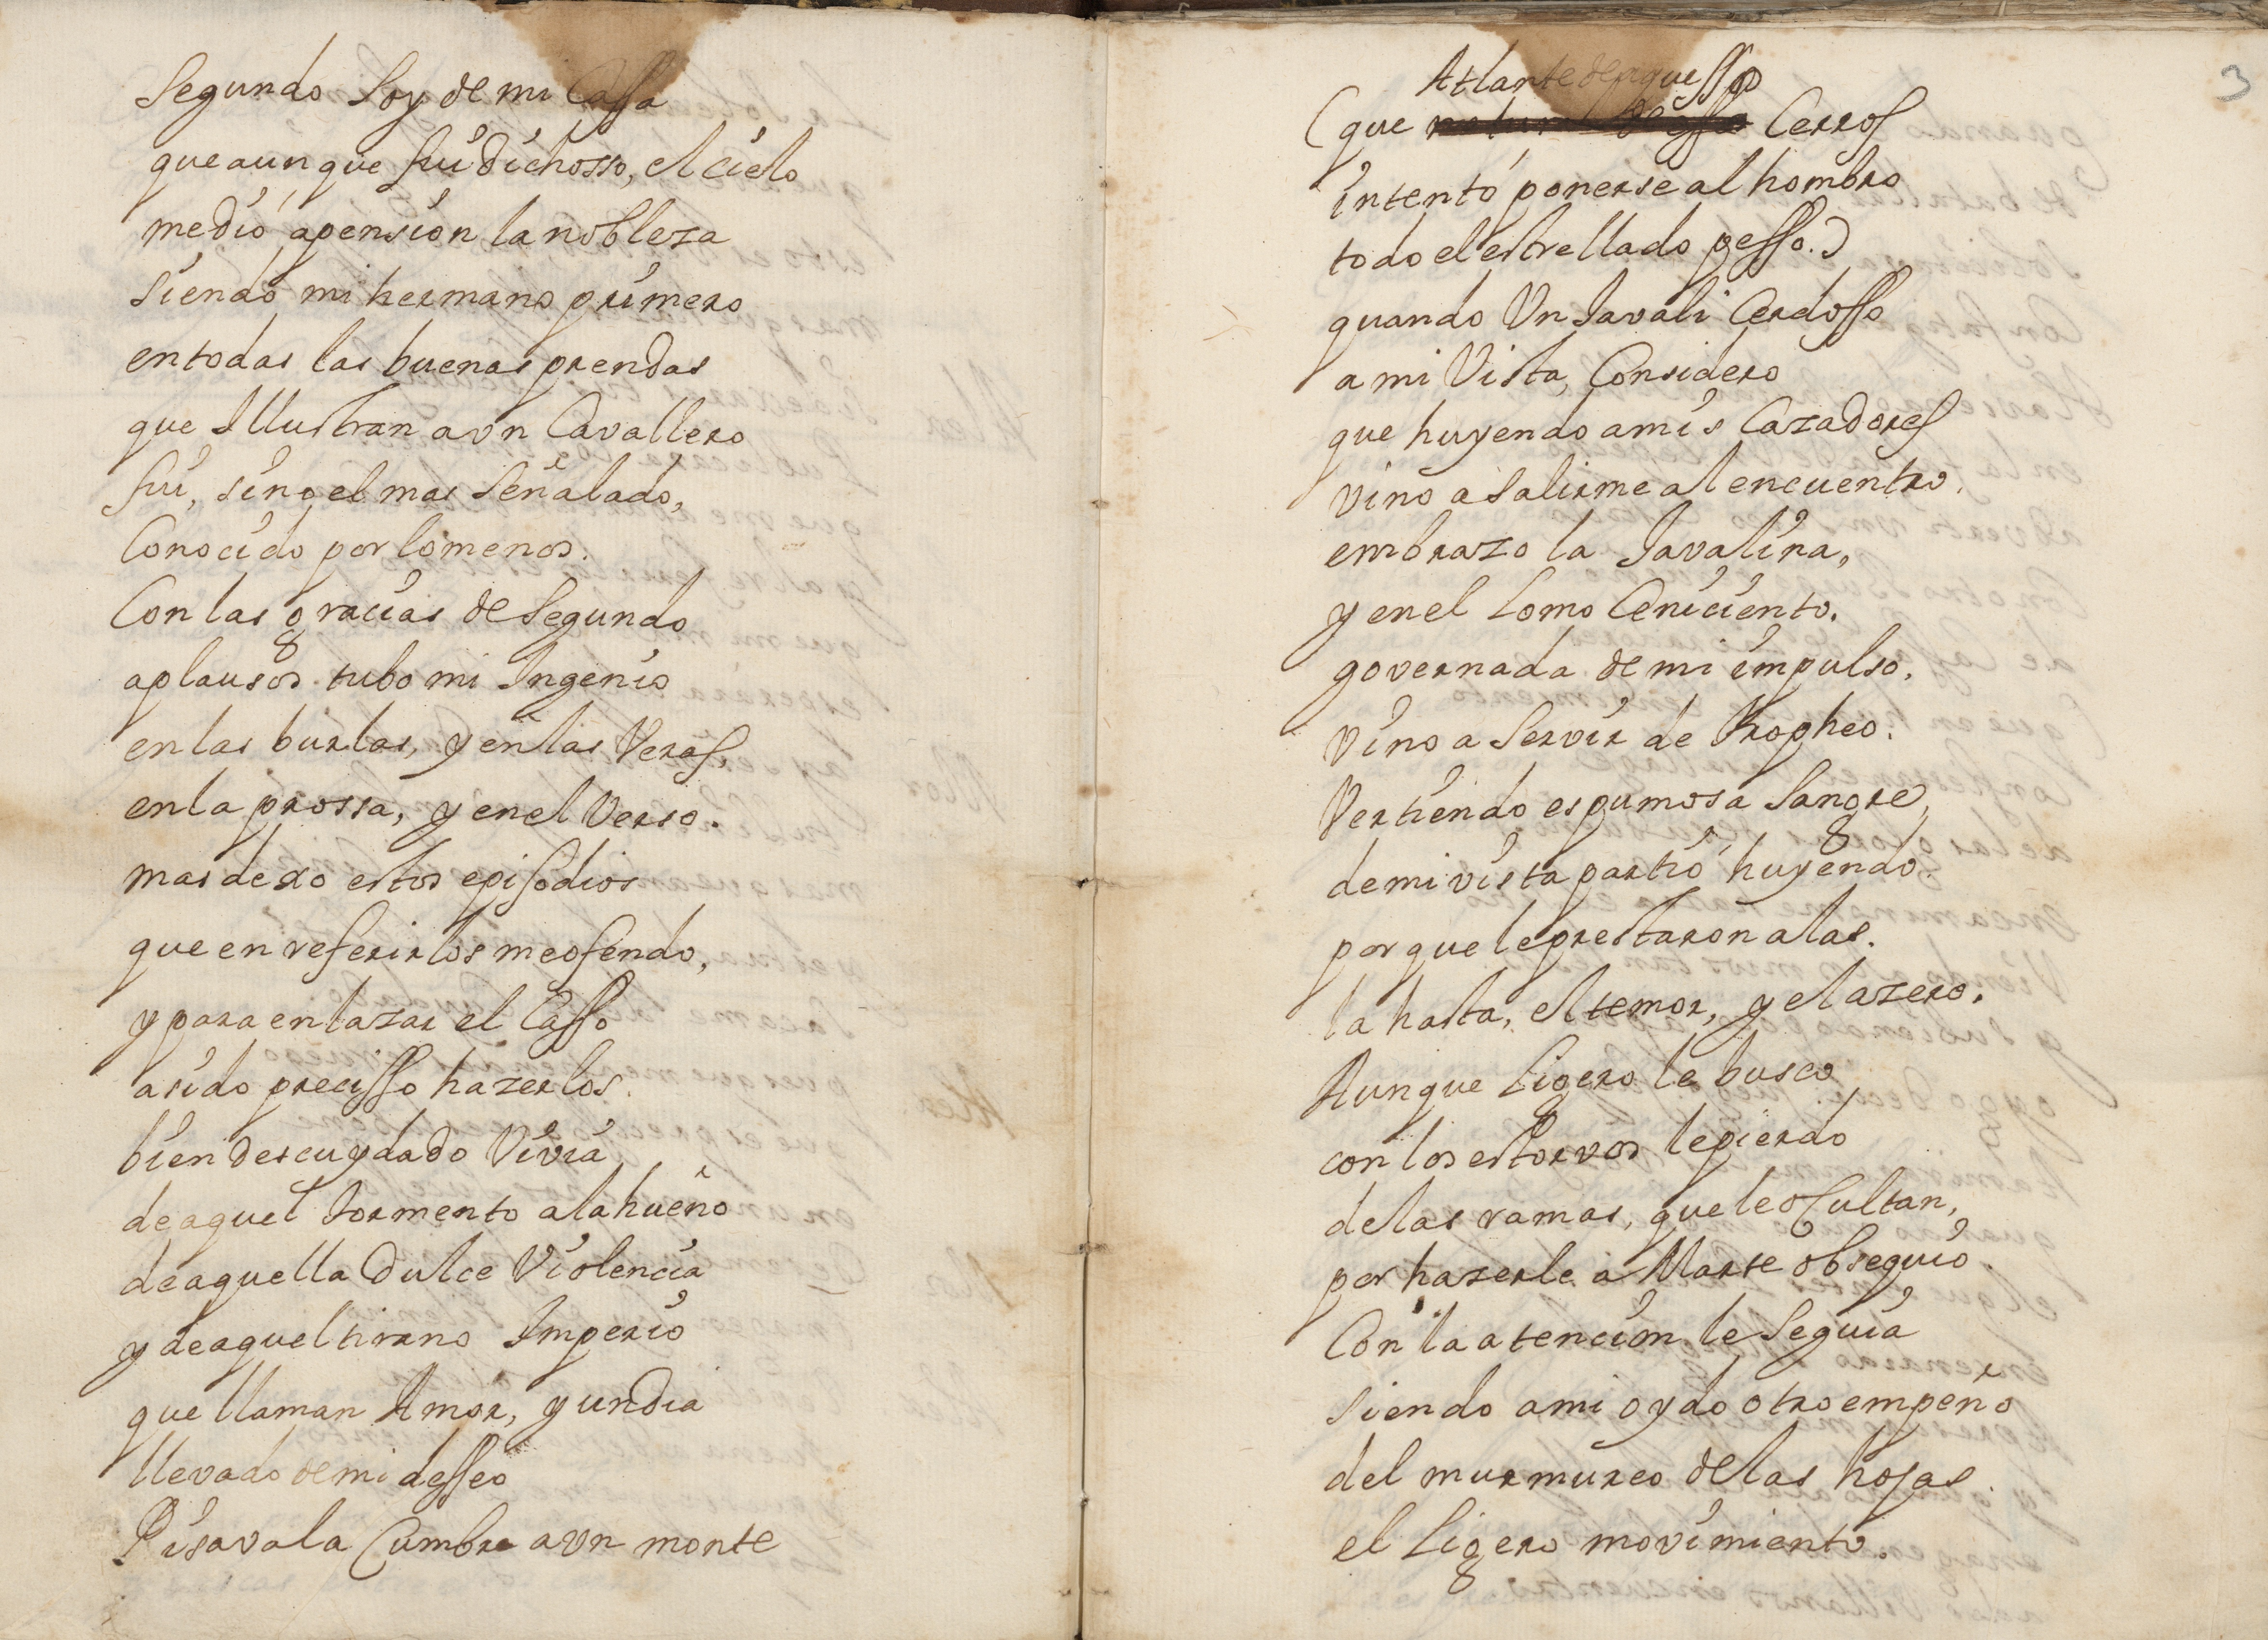 Segundo Soy de mi Cassa
que aunque fui dichosso, el cielo
me dió a pension la nobleza
siendo mi hermano primero
en todas las buenas prendas
que Illustran a vn Cavallero
fui, sino el mas Señalado,
Conocido por lo menos.
Con las gracias de Segundo
aplausos tubo mi Ingenio
en las burlas, y en las Veras,
en la prossa, y en el Verso.
mas dexo estos episodios
que en referirlos me ofendo,
y para enlazar el Casso
a sido precisso hazerlos.
bien descuydado Vivia
de aquel tormento alahueño
de aquella dulce Violencia
y de aquel tirano Imperio
que llaman Amor, y un dia
llevado de mi desseo
Pisava la Cumbre a vn monte
3
Atlante de aquessos
(que Cerros
intentó ponerse al hombro
todo el estrellado pesso.)
quando Vn Javali Cerdosso
a mi Vista, Considero
que huyendo a mis Cazadores
vino a salirme al encuentro.
embrazo la Javalina,
y en el Lomo Ceniciento.
governada de mi impulso.
vino a Servir de tropheo.
Vertiendo espumosa Sangre,
de mi vista partió huyendo.
porque le prestaron alas.
la hasta, el temor, y el azero.
Aunque Ligero le busco
con los estorvos le pierdo
de las ramas, que le ocultan,
por hazerle a Marte obsequio.
Con la atencion le Seguia
siendo a mi oydo otro empeño
del murmureo de las hojas.
el Ligero movimiento.